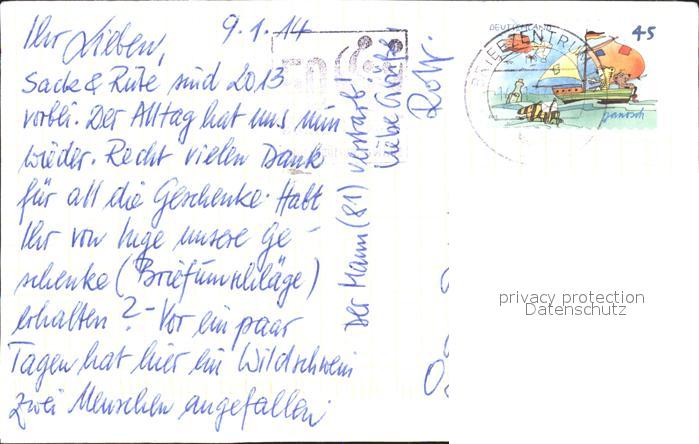 9.1.14
Ihr Lieben,
Sack & Rute sind 2013
vorbei. Der Alltag hat uns nun
wieder. Recht vielen Dank
für all die Geschenke. Habt
Ihr von Inge unsere Ge-
schenke (Briefumschläge)
erhalten? - Vor ein paar
Tagen hat hier ein Wildschwein
zwei Menschen angefallen
Der Mann (81) verstarb!
Liebe Grüße
DEUTSCHLAND
45
BRIEFZENTRUM
janosch
privacy protection
Datenschutz